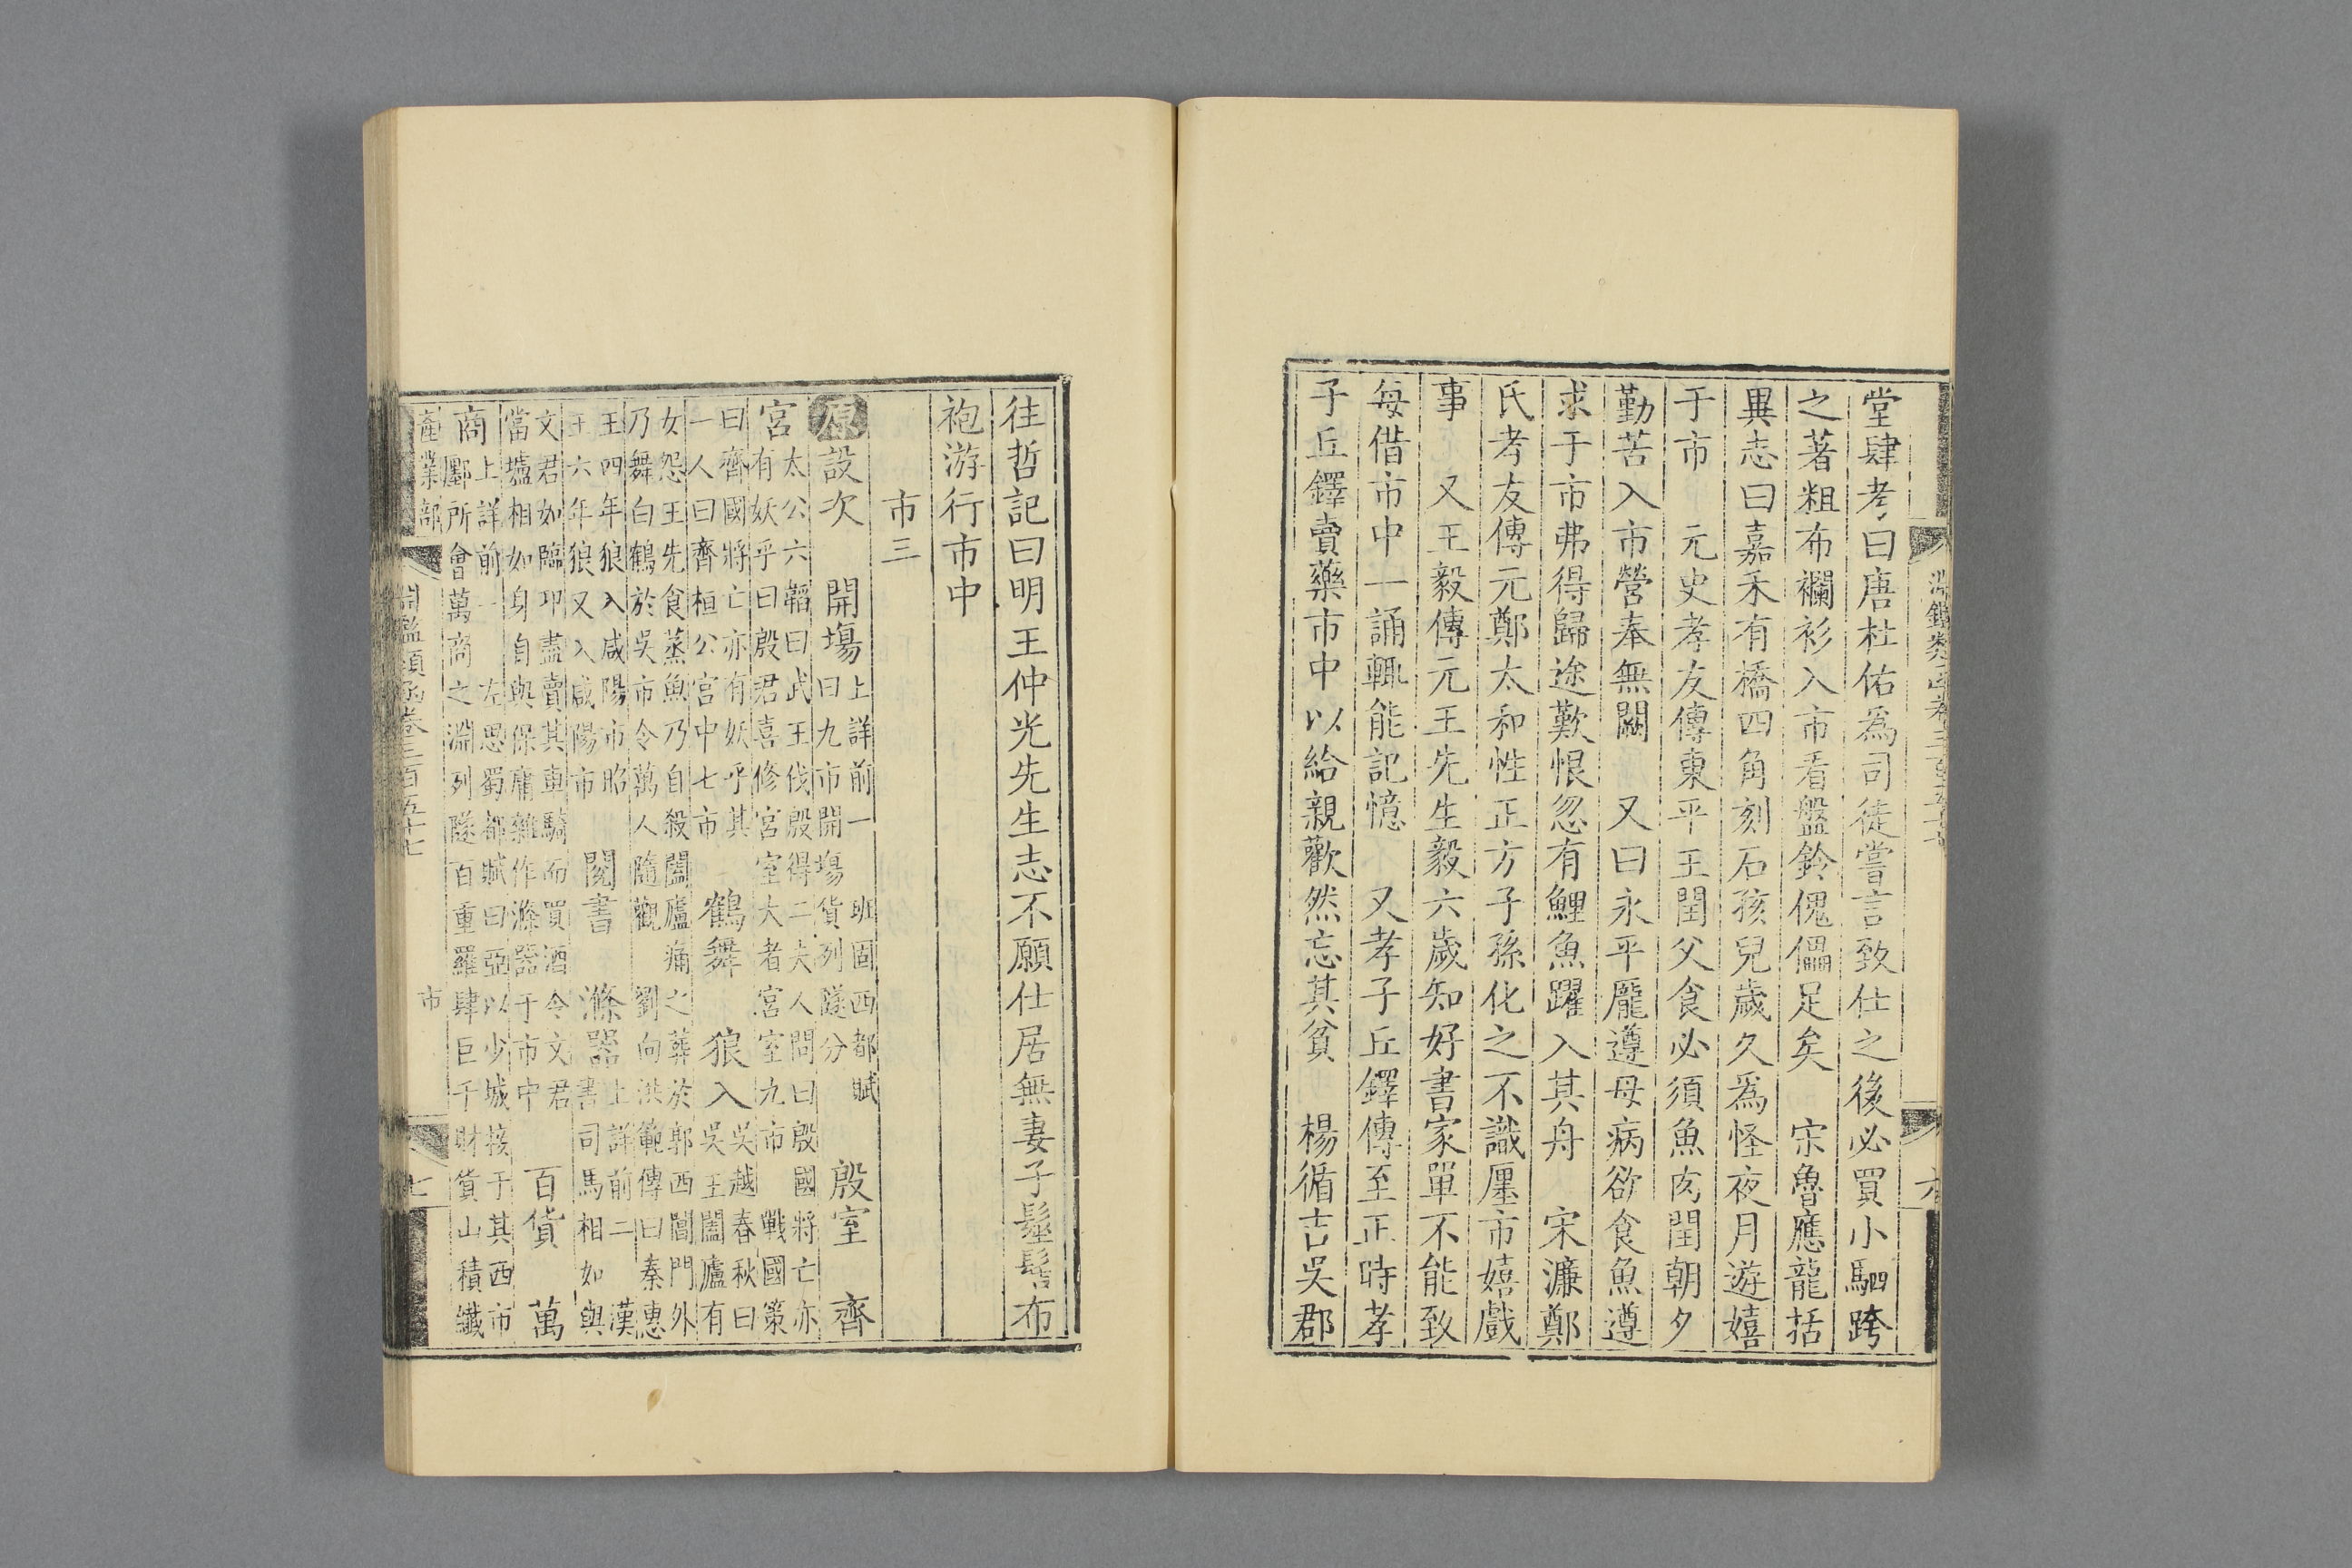 堂肆考曰唐杜佑爲司徒嘗言致仕之後必買小駟跨
之著粗布襴衫入市看盤鈴傀儡足矣　宋魯應龍括
異志曰嘉禾有橋四角刻石孩兒歲久爲怪夜月遊嬉
于市　元史孝友傳東平王閏父食必須魚肉閏朝夕
勤苦入市營奉無闕　又曰永平龐遵母病欲食魚遵
求于市弗得歸途歎恨忽有鯉魚躍入其舟　宋濂鄭
氏孝友傳元鄭太和性正方子孫化之不識廛市嬉戲
事　又王毅傳元王先生毅六歲知好書家單不能致
每借市中一誦輒能記憶　又孝子丘鐸傳至正時孝
子丘鐸賣藥市中以給親歡然忘其貧　楊循吉吳郡
往哲記曰明王仲光先生志不願仕居無妻子髽髻布
袍游行市中
市三
原設次　開場上詳前一　班固西都賦
曰九市開場貨列隧分　殷室　齊
宮太公六韜曰武王伐殷得二大夫人問曰殷國將亡亦
有妖乎曰殷君喜修宮室大者宮室九市　戰國策
曰齊國將亡亦有妖乎其
一人曰齊桓公宮中七市　鶴舞　狼入吳越春秋曰
吳王闔廬有
女怨王先食蒸魚乃自殺闔廬痛之葬於郭西閶門外
乃舞白鶴於吳市令萬人隨觀　劉向洪範傳曰秦惠
王四年狼入咸陽市昭
王六年狼又入咸陽市　閱書　滌器上詳前二　漢
書司馬相如與
文君如臨邛盡賣其車騎而買酒令文君
當壚相如身自與保庸雜作滌器于市中　百貨　萬
商上詳前一　左思蜀都賦曰亞以少城接于其西市
鄽所會萬商之淵列隧百重羅肆巨千財貨山積纖
產業部　淵鑑類函卷三百五十七　市　七